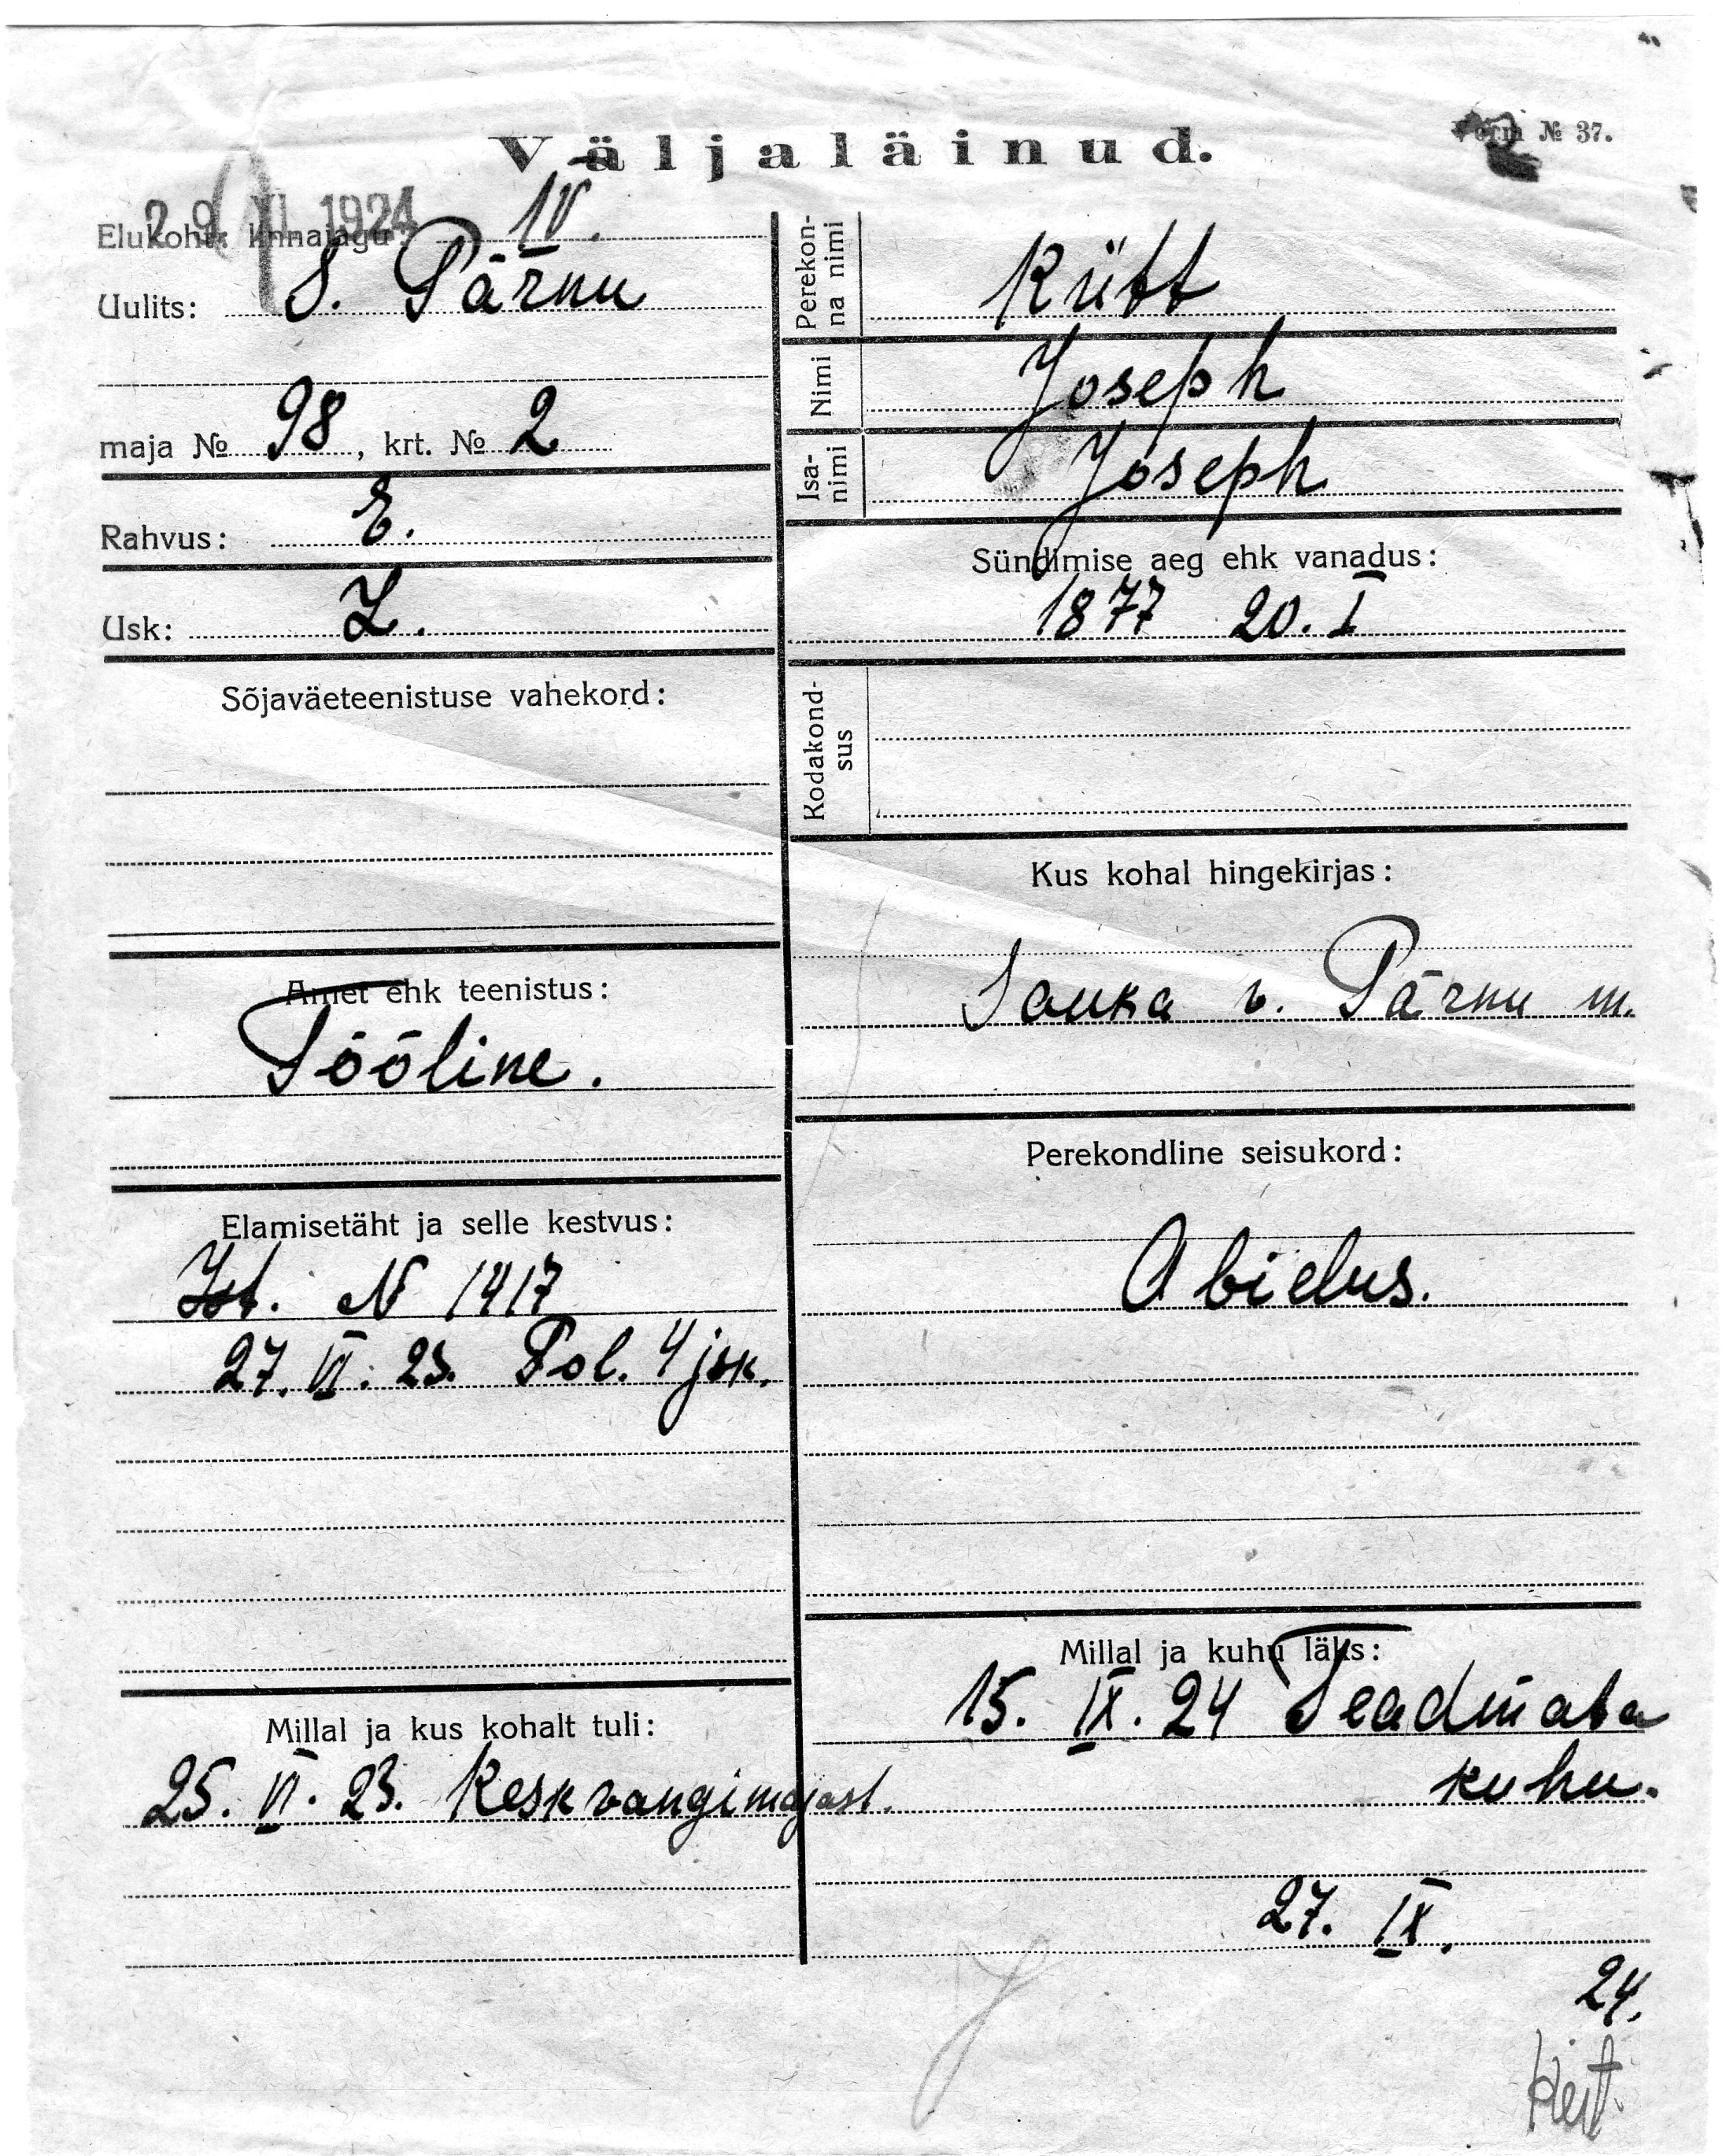 Form № 37.
Väljaläinud.
29 XI 1924
Elukoht: linnajagu: IV.
Uulits: S. Pärnu
maja № 98, krt. № 2
Rahvus: E.
Usk: L.
Sõjaväeteenistuse vahekord:
Amet ehk teenistus:
Tööline.
Elamisetäht ja selle kestvus:
Ist. N 1417
27. VI. 23. Pol. 4 jsk.
Millal ja kus kohalt tuli:
25. VI. 23. Keskvangimajast.
Perekon-
na nimi
Kütt
Nimi
Joseph
Isa-
nimi
Joseph
Sündimise aeg ehk vanadus:
1877 20. I
Kodakond-
sus
Kus kohal hingekirjas:
Sauka v. Pärnu m.
Perekondline seisukord:
Abielus.
Millal ja kuhu läks:
15. IX. 24 Teadmata
kuhu.
27. IX.
24.